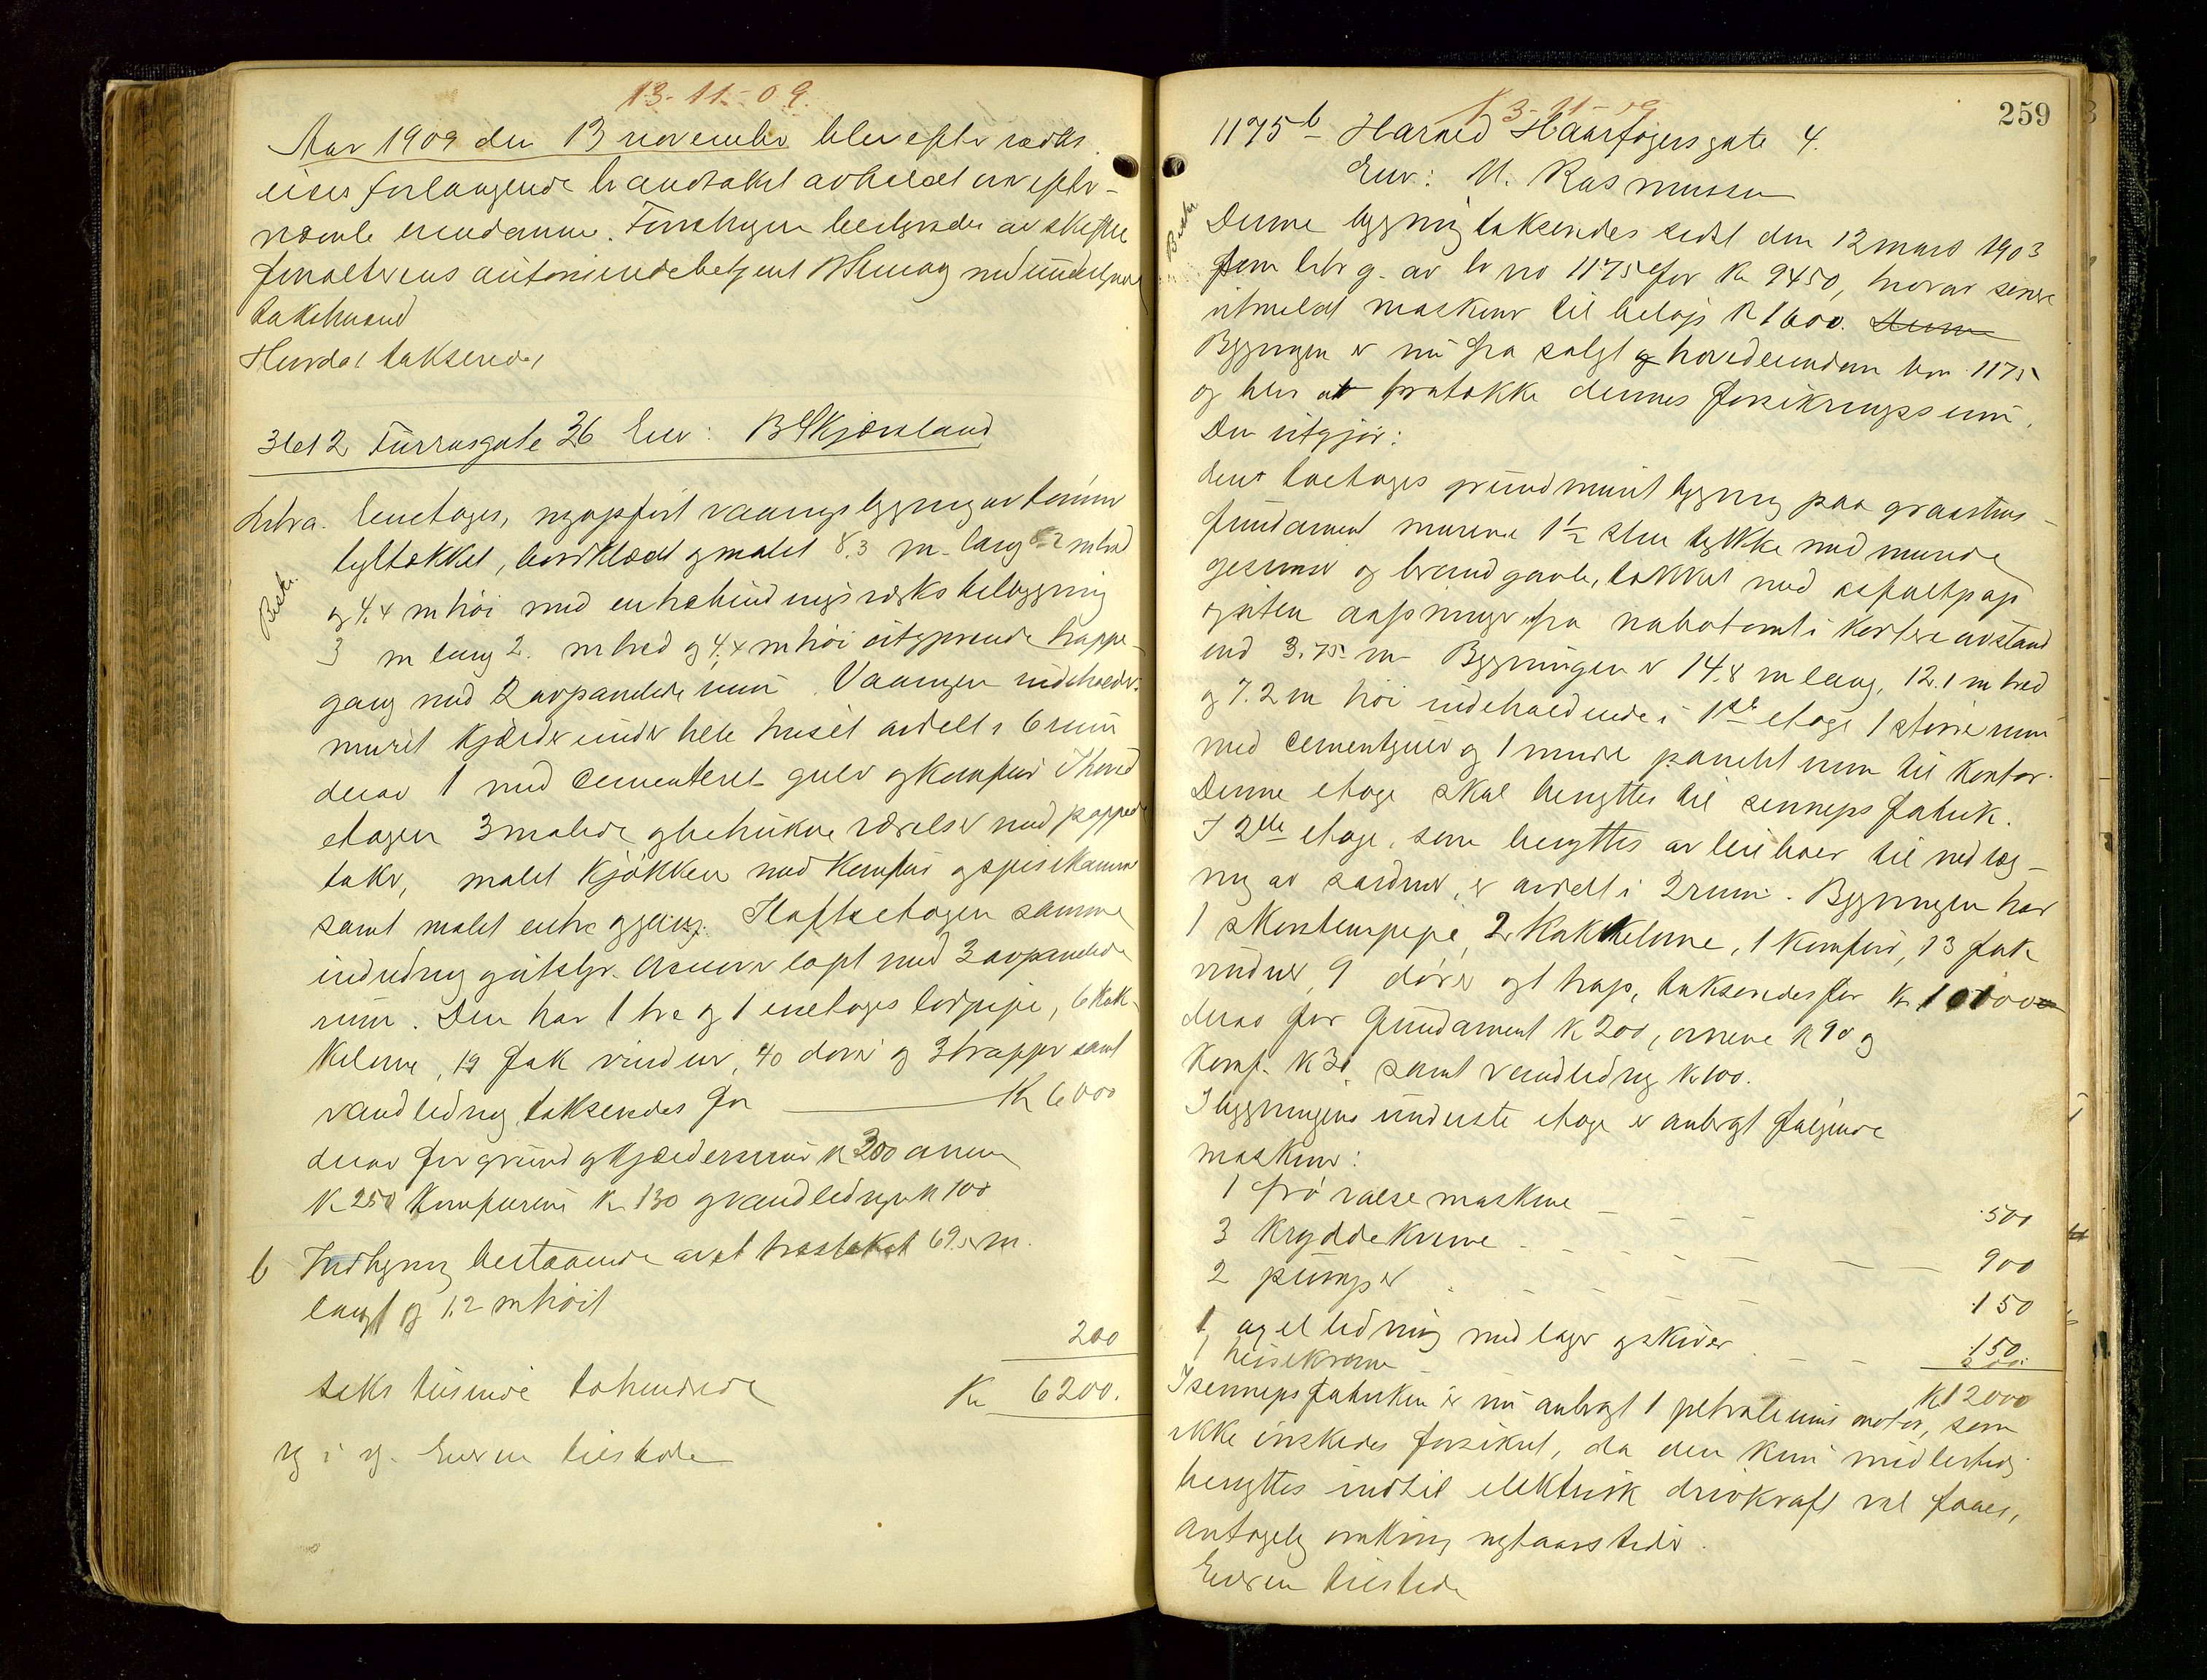 13-11-09.
Aar 1909 den 13 november blev efter vedk.
eieres forlangende brandtakst avholdt over efter-
nævnte eiendomme. Forretningen bestyredes av skifte
forvalterens autoriserede betjent med undertegnede
takstmænd
Herved taksered:
3612 Furrasgate 26 Eier: B Skjæveland
Litra. Eenetages, nyopført vaaningsbygning av tømmer
Besk.
tegltækket, bordklædt og malet 8.3 m. lang m bred
og 4.4 m høi med en halvindvendigs tilbygning
3 m lang 2. m bred og 4.4 m høi utgjørende trappe-
gang med 2 avpanelede rum. Vaaningen indeholder:
muret kjælder under hele huset avdelt i 6 rum
derav 1 med cementeret gulv og komfur I hoved
etagen 3 malede og betrukne værelser med pappede
taker, malet kjøkken med komfur og spiskammer
samt malet entre og gang. I loftsetagen samme
indredning og utstyr. Øverste loft med 3 avpanelede
rum. Den har 1 tre og 1 enetages lodpipe, 6 kak-
kelovne, 19 fak vinduer, 40 dører og 3 trapper samt
vandledning takseredes for Kr 6000
derav for grund og kjældermur kr 300 ovnene
kr 250 komfurerne kr 130 og vandledningen kr 100
b Indhegning bestaaende av et træstakit 69.5 m.
langt og 1.2 m høit
200
seks tusinde tohundrede Kr 6200.
Eieren tilstede
259
13-11-09
1175b Harald Haarfagersgate 4.
Eier: M. Rasmussen
Besk.
Denne bygning takseredes sidst den 12 mars 1903
som litr g. av br no 1175 for kr 9450, hvorav senere
utmeldt maskiner til beløp kr 1600. Denne
Bygningen er nu fra solgt hovedeiendommen br no 1175
og blir at fratrække dennes forsikringssum.
Den utgjør:
den toetages grundmuret bygning paa graastens-
fundament murene 1½ sten tykke med murede
gesimser og brandgavle, tækket med asfaltpap
og uten aapninger fra nabotomt i kortere avstand
end 3.75 m Bygningen er 14.8 m lang, 12.1 m bred
og 7.2 m høi indeholdende i 1ste etage 1 større rum
med cementgulv og 1 mindre panelet rum til kontor.
Denne etage skal benyttes til senneps fabrik.
I 2den etage, som benyttes av leieboer til nedlæg-
ning av sardiner, er avdelt i 2 rum. Bygningen har
1 skorstenspipe, 2 kakkelovne, 1 komfur, 13 fak
vinduer, 9 dører og 1 trap, takseredes for Kr 10000
derav for fundament kr 200, ovnene kr 90 og
komf. kr 30 samt vandledning kr 100.
I bygningens underste etage er anbragt følgende
maskiner:
1 frø valse maskine 500
3 krydderkverne 900
2 pumper 150
1 axel ledning med lager og skiver 150
1 heisekran
Kr 12000
I sennepsfabriken er nu anbragt 1 petroleums motor, som
ikke ønskedes forsikret, da den kun midlertidig
benyttes indtil elektrisk drivkraft vil faaes,
antagelig omkring nytaarstider.
Eieren tilstede